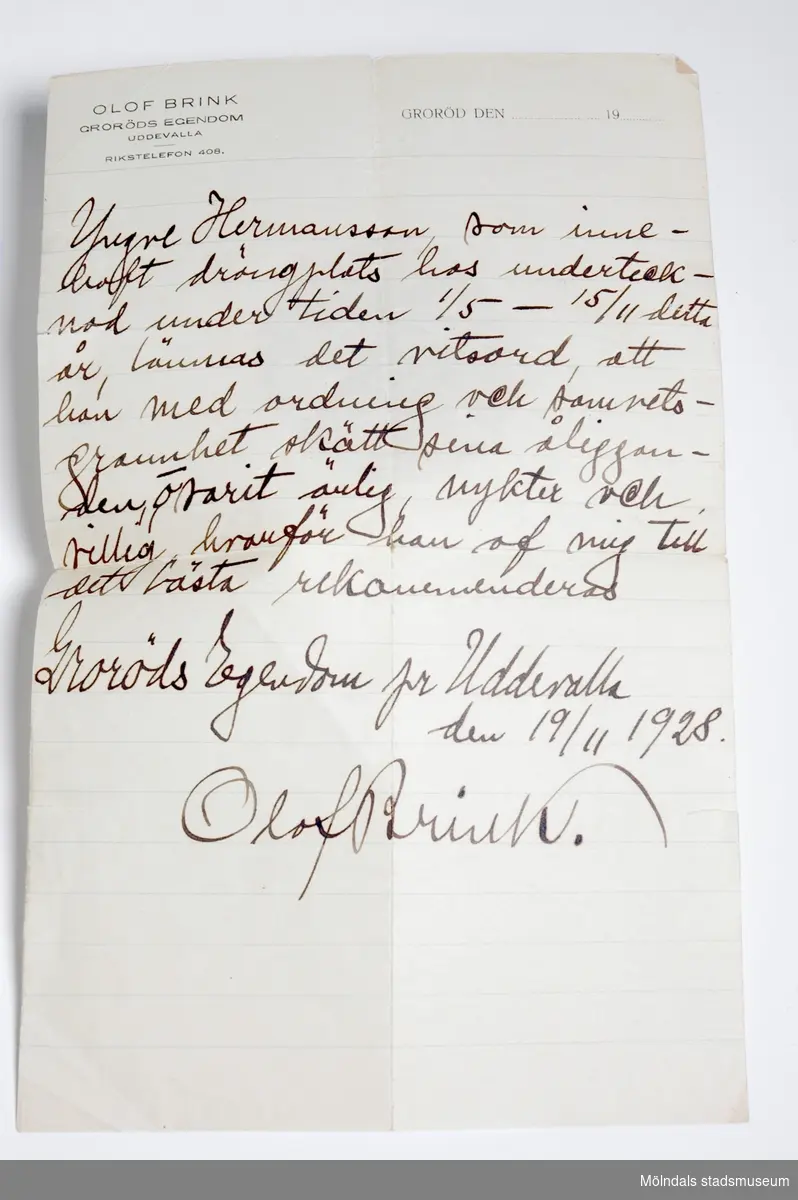 OLOF BRINK
GRORÖDS EGENDOM
UDDEVALLA
RIKSTELEFON 408.
GRORÖD DEN .................... 19..........
Yngve Hermansson, som inne-
haft drängplats hos underteck-
nad under tiden 1/5 — 15/11 detta
år, lämnas det vitsord, att
han med ordning och samvets-
grannhet skött sina åliggan-
den, varit ärlig, nykter och
villig, hvarför han af mig till
det bästa rekommenderas
Groröds Egendom pr Uddevalla
den 19/11 1928.
Olof Brink.
Mölndals stadsmuseum